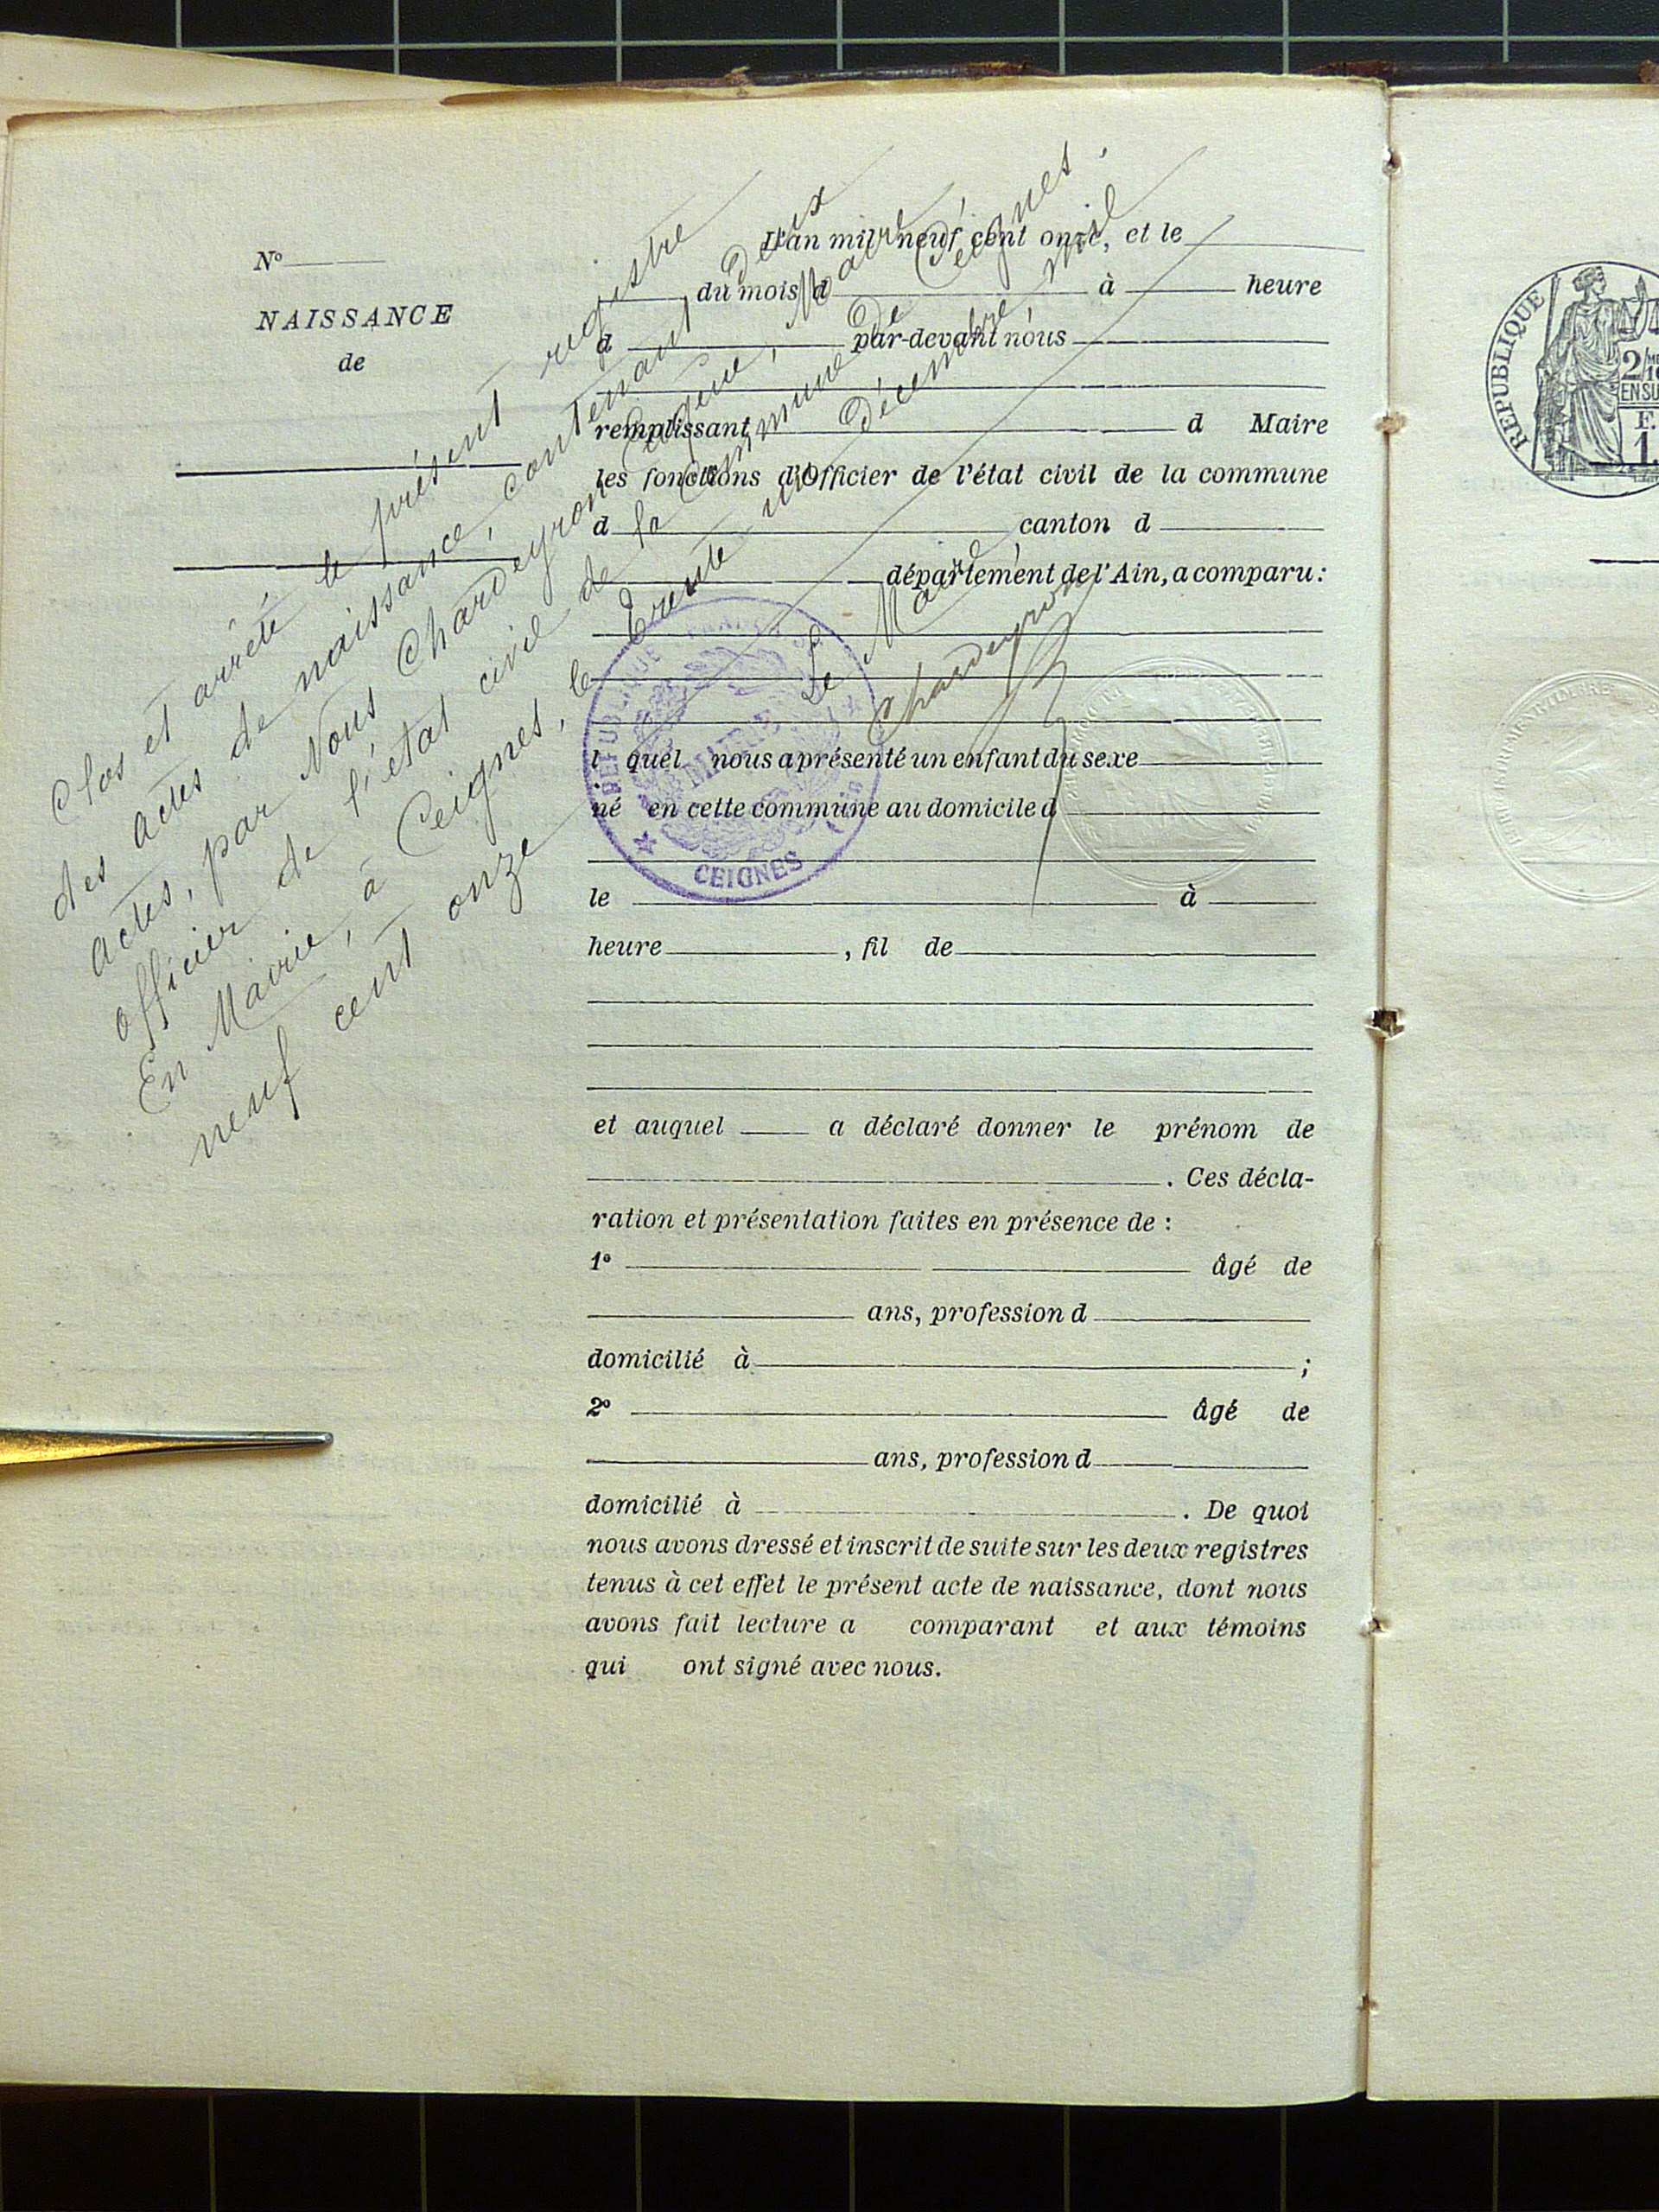 N°
NAISSANCE
de
L'an mil neuf cent onze, et le
du mois d à heure
d par-devant nous
remplissant d Maire
les fonctions d'Officier de l'état civil de la commune
d canton d
département de l'Ain, a comparu :
l quel nous a présenté un enfant du sexe
né en cette commune au domicile d
le à
heure , fil de
et auquel a déclaré donner le prénom de
. Ces décla-
ration et présentation faites en présence de :
1° âgé de
ans, profession d
domicilié à ;
2° âgé de
ans, profession d
domicilié à . De quoi
nous avons dressé et inscrit de suite sur les deux registres
tenus à cet effet le présent acte de naissance, dont nous
avons fait lecture a comparant et aux témoins
qui ont signé avec nous.
Clos et arrêté le présent registre
des actes de naissance, contenant Deux
actes, par Nous Chardeyron Eugène, Maire,
officier de l'état civil de la Commune de Ceignes.
En Mairie, à Ceignes, le trente un Décembre mil
neuf cent onze
Le Maire,
Chardeyron
REPUBLIQUE FRANÇAISE
MAIRIE
CEIGNES
(AIN)
REPUBLIQUE
2/10
EN SU
F.
1.